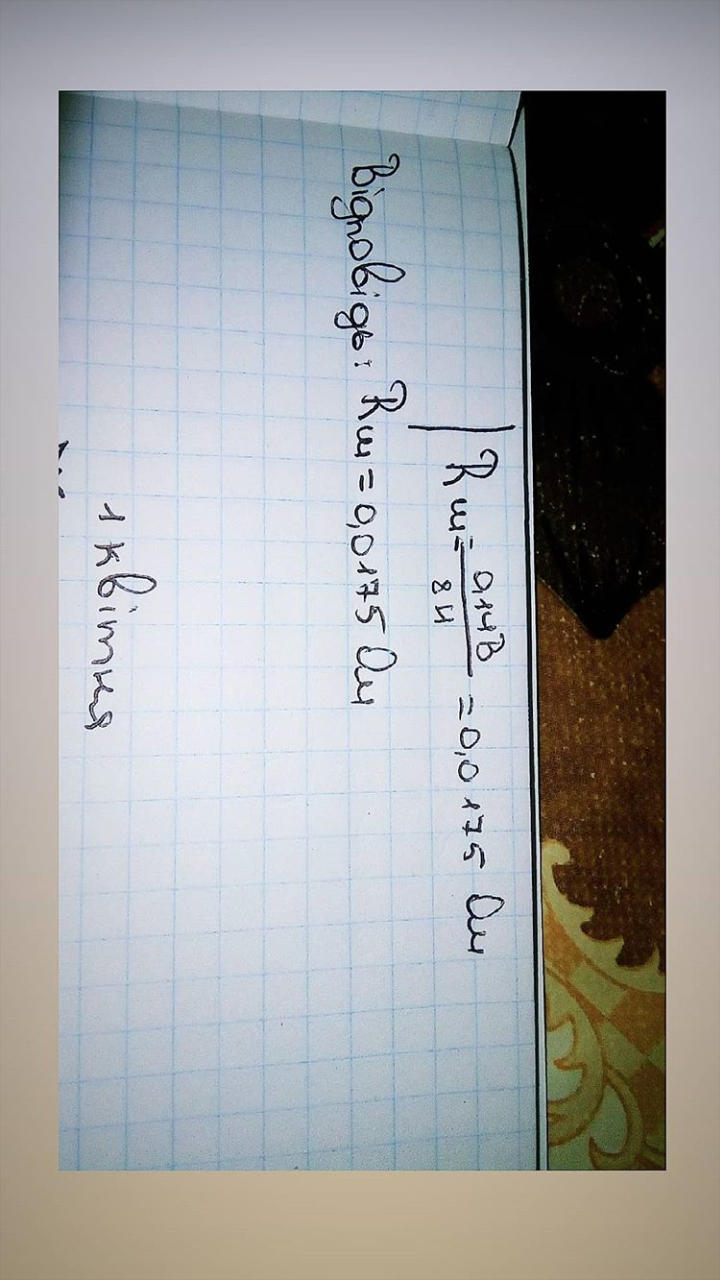 Rш = 0,14В / 8А = 0,0175 Ом
Відповідь: Rш = 0,0175 Ом
1 квітня